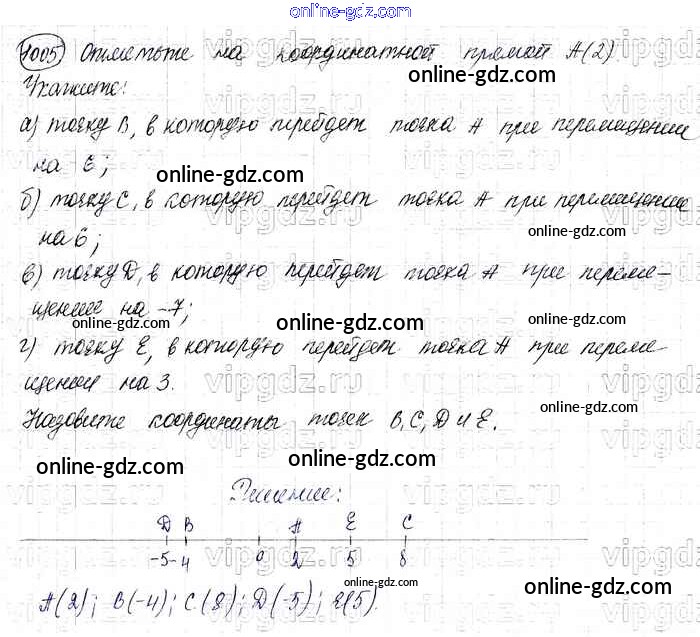 online-gdz.com
1005) Отметьте на координатной прямой A(2).
online-gdz.com
Укажите:
online-gdz.com
а) точку B, в которую перейдет точка A при перемещении
на -6;
online-gdz.com
б) точку C, в которую перейдет точка A при перемещении
на 6;
online-gdz.com
в) точку D, в которую перейдет точка A при переме-
щении на -7;
online-gdz.com online-gdz.com online-gdz.com
г) точку E, в которую перейдет точка A при переме-
щении на 3.
online-gdz.com
Назовите координаты точек B, C, D и E.
online-gdz.com online-gdz.com
Решение:
D B A E C
-5 -4 0 2 5 8
online-gdz.com online-gdz.com
A(2); B(-4); C(8); D(-5); E(5).
vipgdz.ru